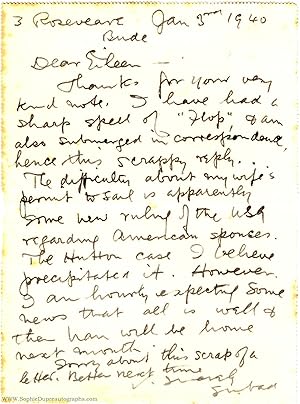 3 Roseveare Jan 3rd 1940
Bude
Dear Eileen —
Thanks for your very
kind note. I have had a
sharp spell of "Flop" & am
also submerged in correspondence,
hence this scrappy reply..
The difficulty about my wife's
permit to sail is apparently
some new ruling of the USA
regarding American spouses.
The Hutton case I believe
precipitated it. However
I am hourly expecting some
news that all is well &
then will be home
next month.
Sorry about this scrap of a
letter. Better next time
Sinbad
www.SophieDupreautographs.com